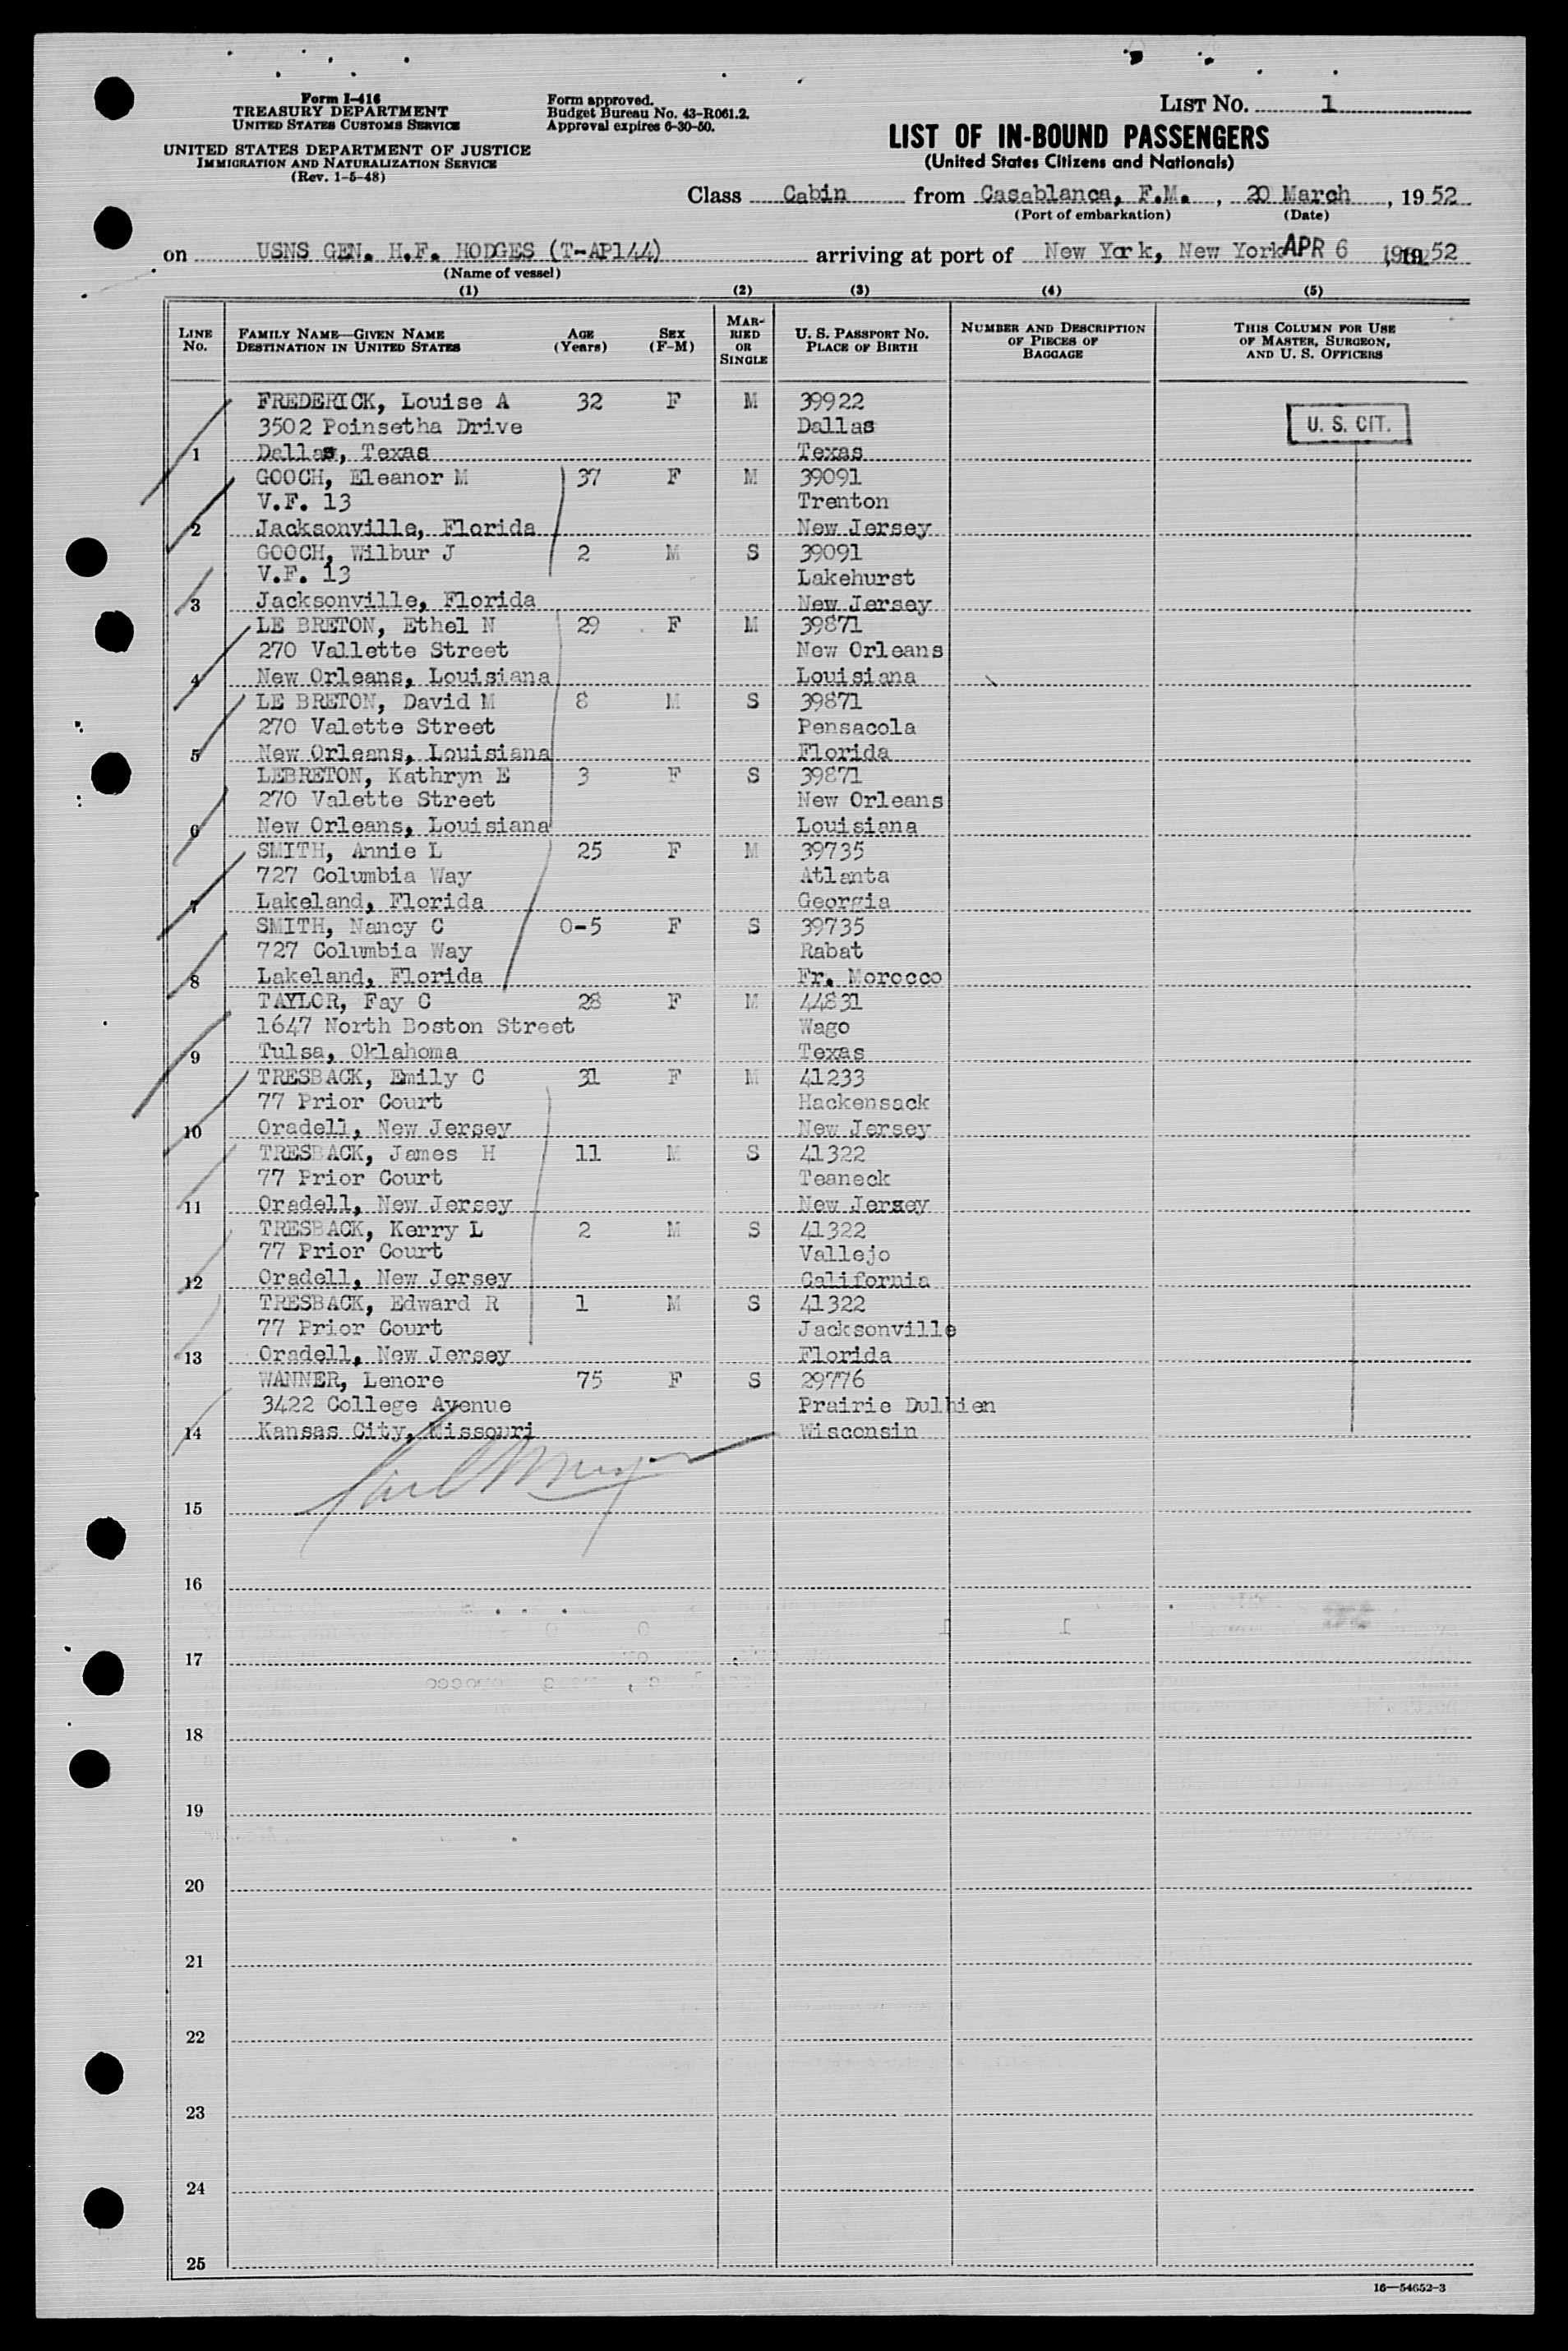 Form I-416
TREASURY DEPARTMENT
UNITED STATES CUSTOMS SERVICE
UNITED STATES DEPARTMENT OF JUSTICE
IMMIGRATION AND NATURALIZATION SERVICE
(Rev. 1-5-48)
Form approved.
Budget Bureau No. 43-R061.2.
Approval expires 6-30-50.
LIST No. 1
LIST OF IN-BOUND PASSENGERS
(United States Citizens and Nationals)
Class Cabin from Casablanca, F.M., 20 March, 1952
(Port of embarkation) (Date)
on USNS GEN. H.F. HODGES (T-AP144) arriving at port of New York, New York APR 6 52
(Name of vessel)
(1) (2) (3) (4) (5)
LINE No. FAMILY NAME—GIVEN NAME DESTINATION IN UNITED STATES AGE (Years) SEX (F-M) MARRIED OR SINGLE U. S. PASSPORT No. PLACE OF BIRTH NUMBER AND DESCRIPTION OF PIECES OF BAGGAGE THIS COLUMN FOR USE OF MASTER, SURGEON, AND U. S. OFFICERS
FREDERICK, Louise A 32 F M 39922
3502 Poinsetha Drive Dallas U. S. CIT.
1 Dallas, Texas Texas
GOOCH, Eleanor M 37 F M 39091
V.F. 13 Trenton
2 Jacksonville, Florida New Jersey
GOOCH, Wilbur J 2 M S 39091
V.F. 13 Lakehurst
3 Jacksonville, Florida New Jersey
LE BRETON, Ethel N 29 F M 39871
270 Vallette Street New Orleans
4 New Orleans, Louisiana Louisiana
LE BRETON, David M 8 M S 39871
270 Valette Street Pensacola
5 New Orleans, Louisiana Florida
LEBRETON, Kathryn E 3 F S 39871
270 Valette Street New Orleans
6 New Orleans, Louisiana Louisiana
SMITH, Annie L 25 F M 39735
727 Columbia Way Atlanta
7 Lakeland, Florida Georgia
SMITH, Nancy C 0-5 F S 39735
727 Columbia Way Rabat
8 Lakeland, Florida Fr. Morocco
TAYLOR, Fay C 28 F M 44831
1647 North Boston Street Wago
9 Tulsa, Oklahoma Texas
TRESBACK, Emily C 31 F M 41233
77 Prior Court Hackensack
10 Oradell, New Jersey New Jersey
TRESBACK, James H 11 M S 41322
77 Prior Court Teaneck
11 Oradell, New Jersey New Jersey
TRESBACK, Kerry L 2 M S 41322
77 Prior Court Vallejo
12 Oradell, New Jersey California
TRESBACK, Edward R 1 M S 41322
77 Prior Court Jacksonville
13 Oradell, New Jersey Florida
WANNER, Lenore 75 F S 29776
3422 College Avenue Prairie Dulhien
14 Kansas City, Missouri Wisconsin
15
16
17
18
19
20
21
22
23
24
25
16—54652-3